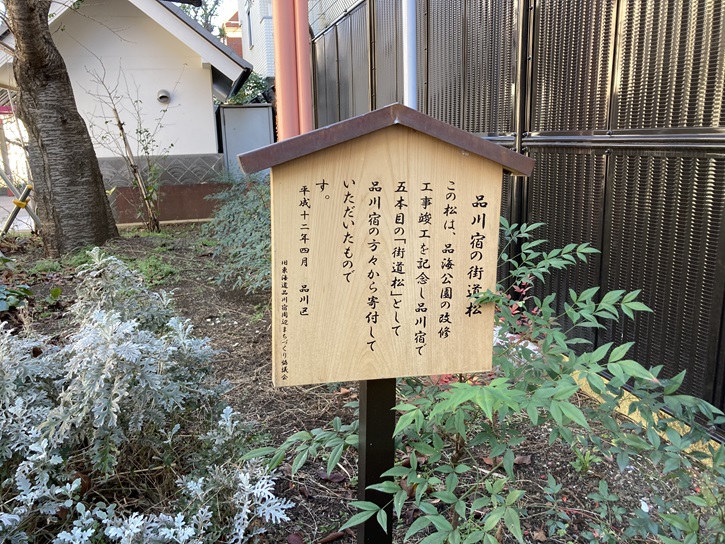 品川宿の街道松
この松は、品海公園の改修
工事竣工を記念し品川宿で
五本目の「街道松」として
品川宿の方々から寄付して
いただいたもので
す。
平成十二年四月 品川区
旧東海道品川宿周辺まちづくり協議会